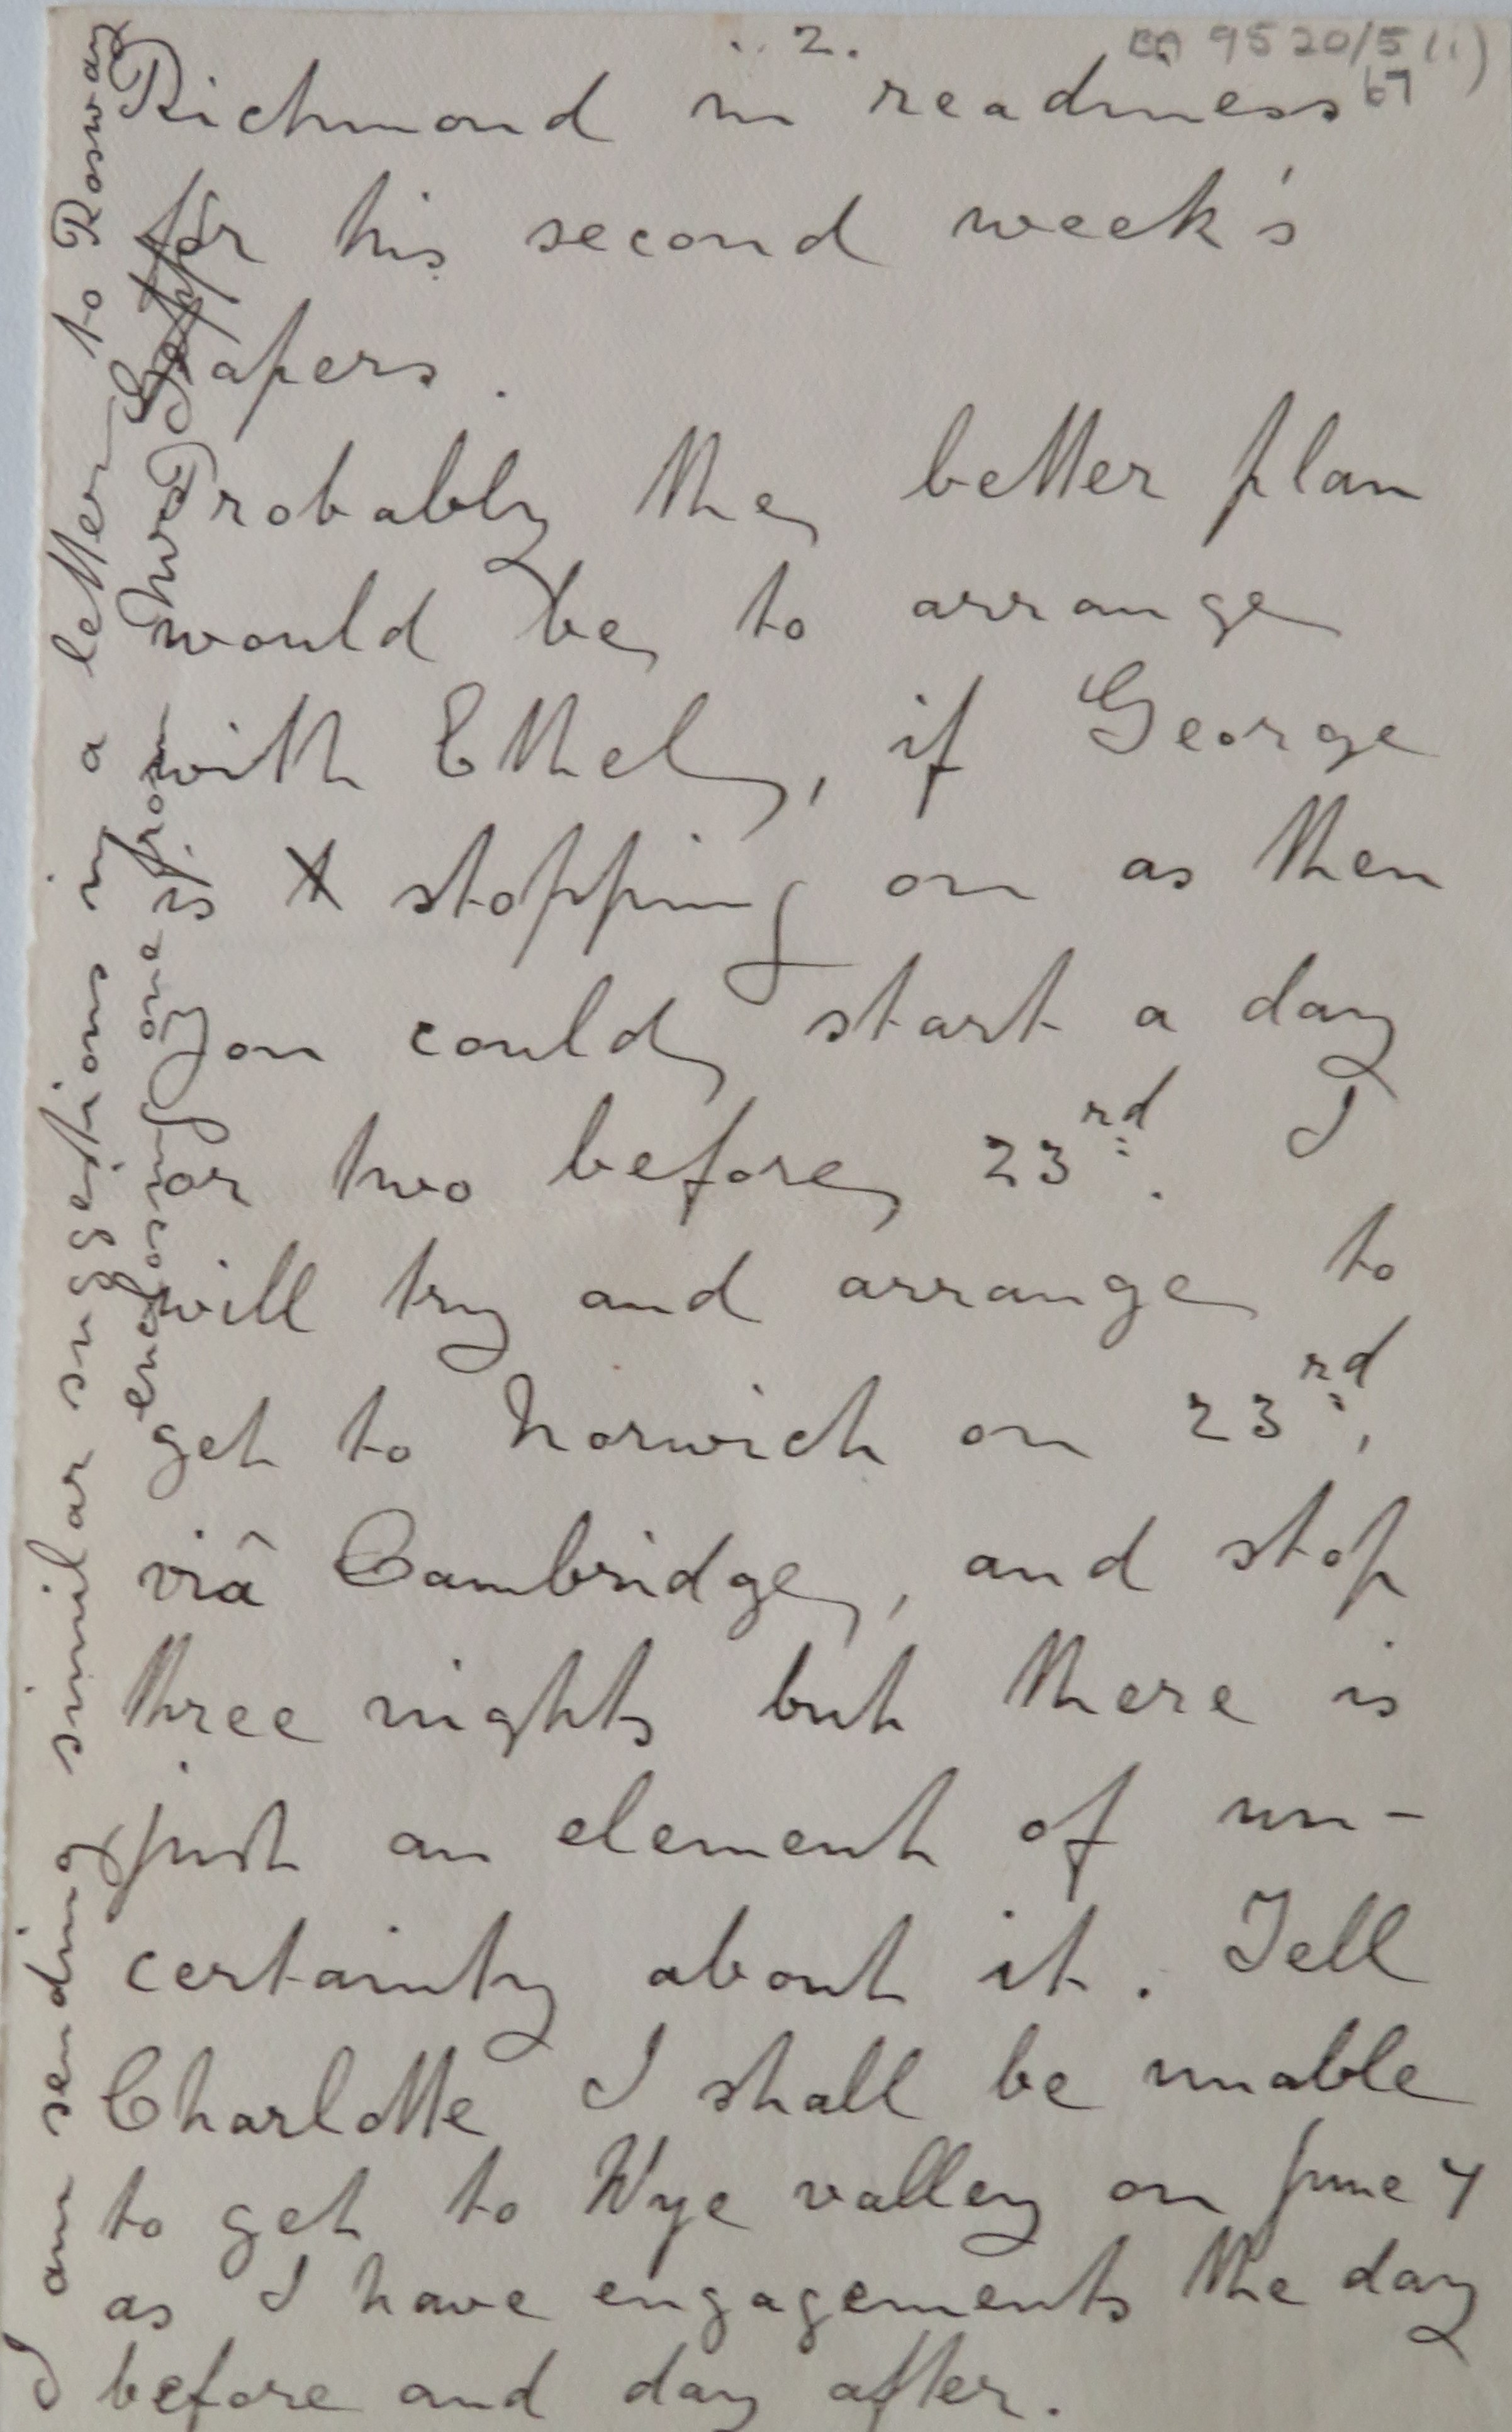 2.
9520/5(i)
67
Richmond in readiness
for his second week's
Papers.
Probably the better plan
would be to arrange
with Ethel, if George
is stopping on as then
you could start a day
or two before 23rd. I
will try and arrange to
get to Norwich on 23rd,
viâ Cambridge, and stop
three nights but there is
just an element of un-
certainty about it. Tell
Charlotte I shall be unable
to get to Wye valley on June 4
as I have engagements the day
before and day after.
I am sending similar suggestions in a letter to Rosway
enclosing one from